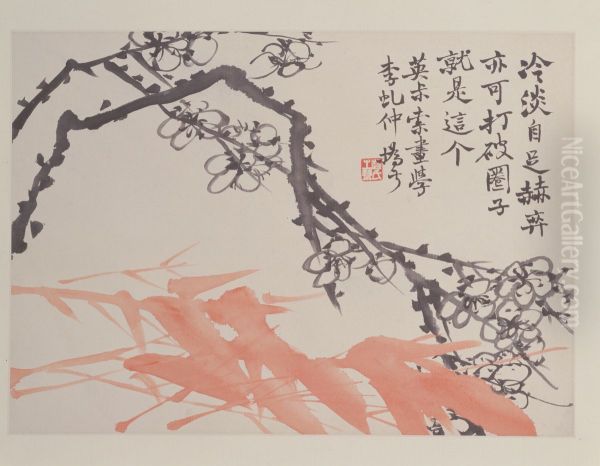 冷淡自足赫奕
亦可打破圈子
就是這个
英尗索畫學
李虬仲
NiceArtGallery.com